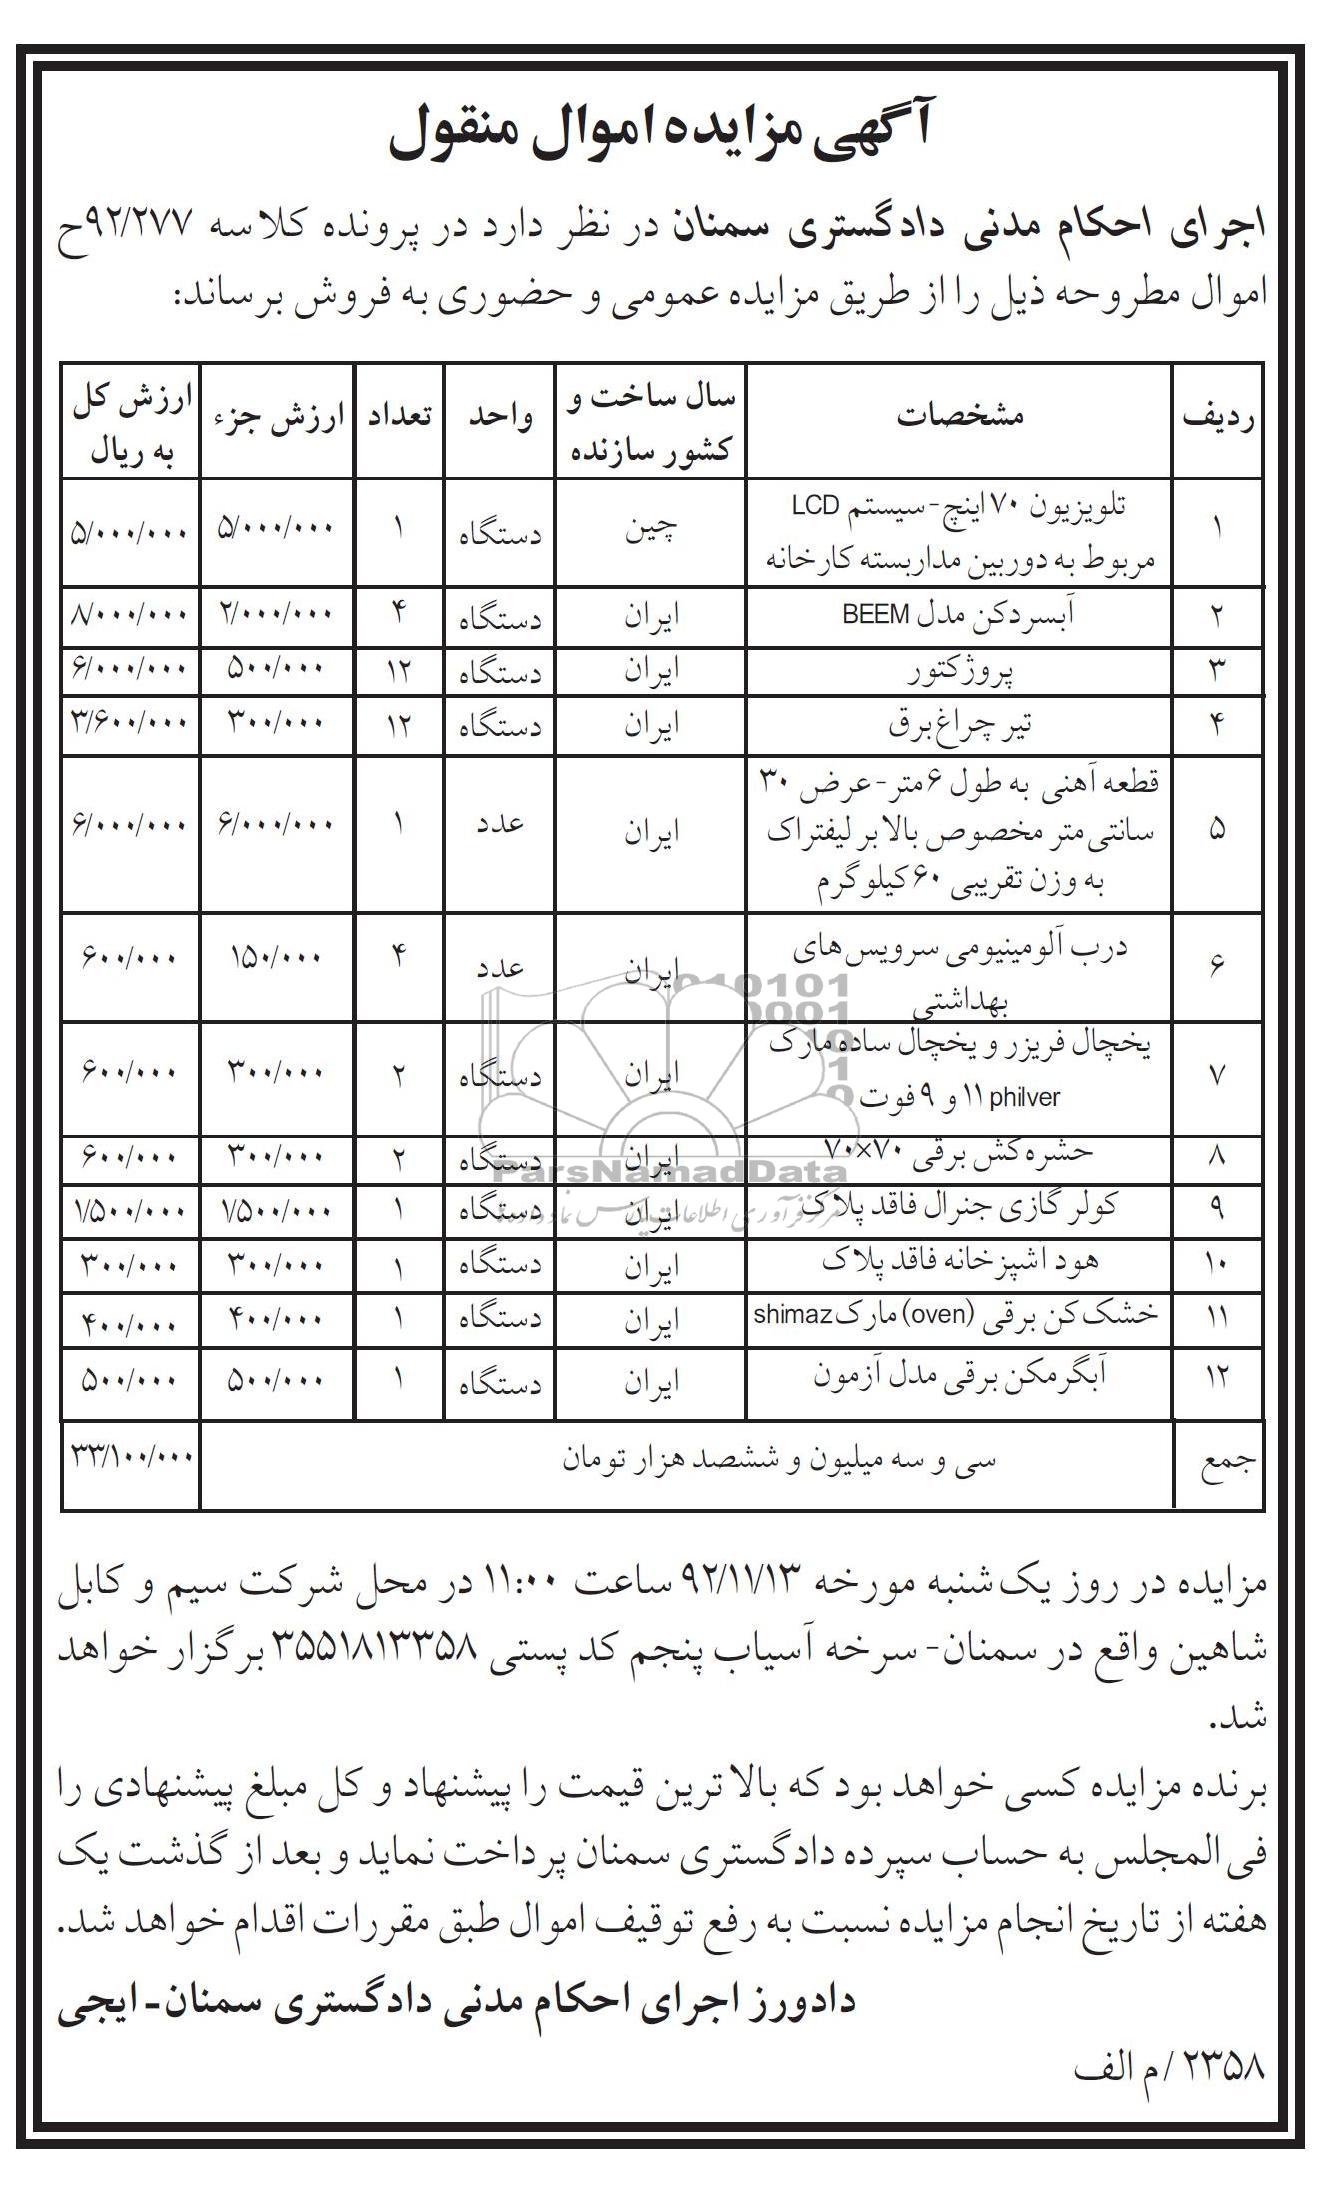 آگهی مزایده اموال منقول
اجرای احکام مدنی دادگستری سمنان در نظر دارد در پرونده کلاسه ۹۲/۲۷۷ح
اموال مطروحه ذیل را از طریق مزایده عمومی و حضوری به فروش برساند:
ردیف مشخصات سال ساخت و کشور سازنده واحد تعداد ارزش جزء ارزش کل به ریال
۱ تلویزیون ۷۰ اینچ - سیستم LCD مربوط به دوربین مداربسته کارخانه چین دستگاه ۱ ۵/۰۰۰/۰۰۰ ۵/۰۰۰/۰۰۰
۲ آبسردکن مدل BEEM ایران دستگاه ۴ ۲/۰۰۰/۰۰۰ ۸/۰۰۰/۰۰۰
۳ پروژکتور ایران دستگاه ۱۲ ۵۰۰/۰۰۰ ۶/۰۰۰/۰۰۰
۴ تیر چراغ برق ایران دستگاه ۱۲ ۳۰۰/۰۰۰ ۳/۶۰۰/۰۰۰
۵ قطعه آهنی به طول ۶ متر - عرض ۳۰ سانتی‌متر مخصوص بالابر لیفتراک به وزن تقریبی ۶۰ کیلوگرم ایران عدد ۱ ۶/۰۰۰/۰۰۰ ۶/۰۰۰/۰۰۰
۶ درب آلومینیومی سرویس‌های بهداشتی ایران عدد ۴ ۱۵۰/۰۰۰ ۶۰۰/۰۰۰
۷ یخچال فریزر و یخچال ساده مارک philver ۱۱ و ۹ فوت ایران دستگاه ۲ ۳۰۰/۰۰۰ ۶۰۰/۰۰۰
۸ حشره‌کش برقی ۷۰×۷۰ ایران دستگاه ۲ ۳۰۰/۰۰۰ ۶۰۰/۰۰۰
۹ کولر گازی جنرال فاقد پلاک ایران دستگاه ۱ ۱/۵۰۰/۰۰۰ ۱/۵۰۰/۰۰۰
۱۰ هود اشپزخانه فاقد پلاک ایران دستگاه ۱ ۳۰۰/۰۰۰ ۳۰۰/۰۰۰
۱۱ خشک‌کن برقی (oven) مارک shimaz ایران دستگاه ۱ ۴۰۰/۰۰۰ ۴۰۰/۰۰۰
۱۲ آبگرمکن برقی مدل آزمون ایران دستگاه ۱ ۵۰۰/۰۰۰ ۵۰۰/۰۰۰
جمع سی و سه میلیون و ششصد هزار تومان ۳۳/۱۰۰/۰۰۰
ParsNamadData
مزایده در روز یک‌شنبه مورخه ۹۲/۱۱/۱۳ ساعت ۱۱:۰۰ در محل شرکت سیم و کابل
شاهین واقع در سمنان- سرخه آسیاب پنجم کد پستی ۳۵۵۱۸۱۳۳۵۸ برگزار خواهد
شد.
برنده مزایده کسی خواهد بود که بالاترین قیمت را پیشنهاد و کل مبلغ پیشنهادی را
فی‌المجلس به حساب سپرده دادگستری سمنان پرداخت نماید و بعد از گذشت یک
هفته از تاریخ انجام مزایده نسبت به رفع توقیف اموال طبق مقررات اقدام خواهد شد.
دادورز اجرای احکام مدنی دادگستری سمنان ـ ایجی
۲۳۵۸ / م الف